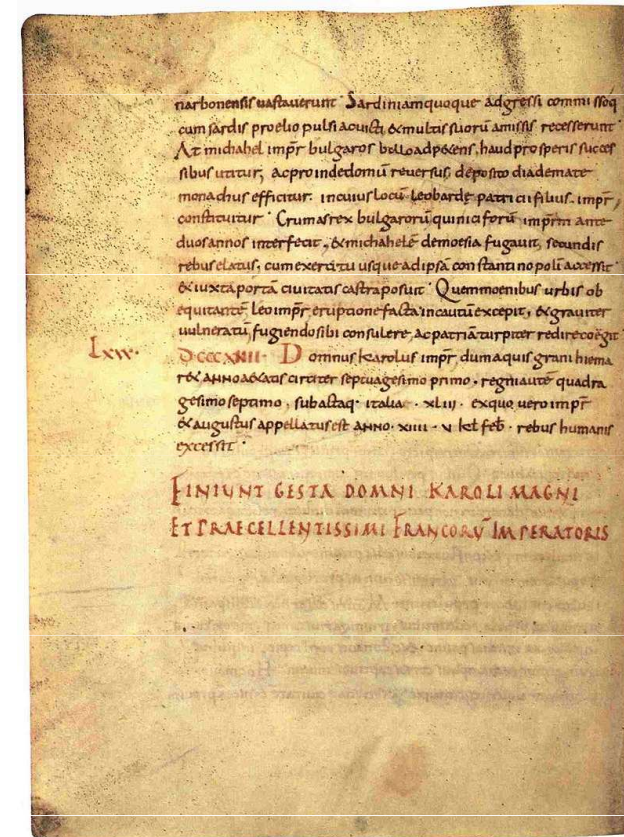 narbonensis vastaverunt. Sardiniam quoque adgressi commissoq;
cum sardis proelio pulsi ac victi & multis suorū amissis recesserunt.
At michahel impr̄ bulgaros bello adp&ens, haud prosperis succes
sibus utitur, ac proinde domū reversus, deposito diademate
monachus efficitur. in cuius locū leo bardę patricii filius. impr̄,
constituitur. Crumas rex bulgarorū qui niciforū impr̄m ante
duos annos interfecit, & michahelē de moesia fugavit, secundis
rebus elatus, cum exercitu usque ad ipsā constantinopolī accessit.
& iuxta portā civitatis castra posuit. Quem moenibus urbis ob
equitantē, leo impr̄ eruptione facta incautū excepit, & graviter
vulneratū, fugiendo sibi consulere, ac patriā turpiter redire coegit.
Lxxv. D.CCC.XIIII. Domnus Karolus impr̄ dum aquisgrani hiema
r&, anno a&atis circiter septuagesimo primo. regni autē quadra
gesimo septimo. subactaq. italiae. xliii. ex quo vero impr̄
& augustus appellatus est anno. xiiii. v kł feb̄. rebus humanis
excessit.
FINIUNT GESTA DOMNI KAROLI MAGNI
ET PRAECELLENTISSIMI FRANCORŪ IMPERATORIS